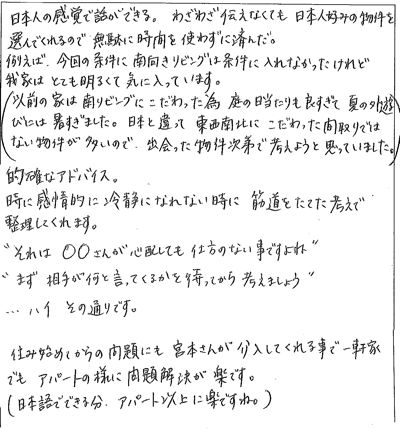 日本人の感覚で話ができる。わざわざ伝えなくても日本人好みの物件を
選んでくれるので無駄に時間を使わずに済んだ。
例えば、今回の条件に南向きリビングは条件に入れなかったけれど
我家はとても明るくて気に入っています。
(以前の家は南リビングにこだわった為 庭の日当たりも良すぎて夏の外遊
びには暑すぎました。日本と違って東西南北にこだわった間取りでは
ない物件が多いので、出会った物件次第で考えようと思っていました。)
的確なアドバイス。
時に感情的に冷静になれない時に 筋道をたてた考えで
整理してくれます。
"それは ○○さんが心配しても仕方のない事ですよね"
"まず 相手が何と言ってくるかを待ってから考えましょう"
… ハイ その通りです。
住み始めてからの問題にも 宮本さんが介入してくれる事で一軒家
でも アパートの様に問題解決が楽です。
(日本語でできる分、アパート以上に楽ですね。)